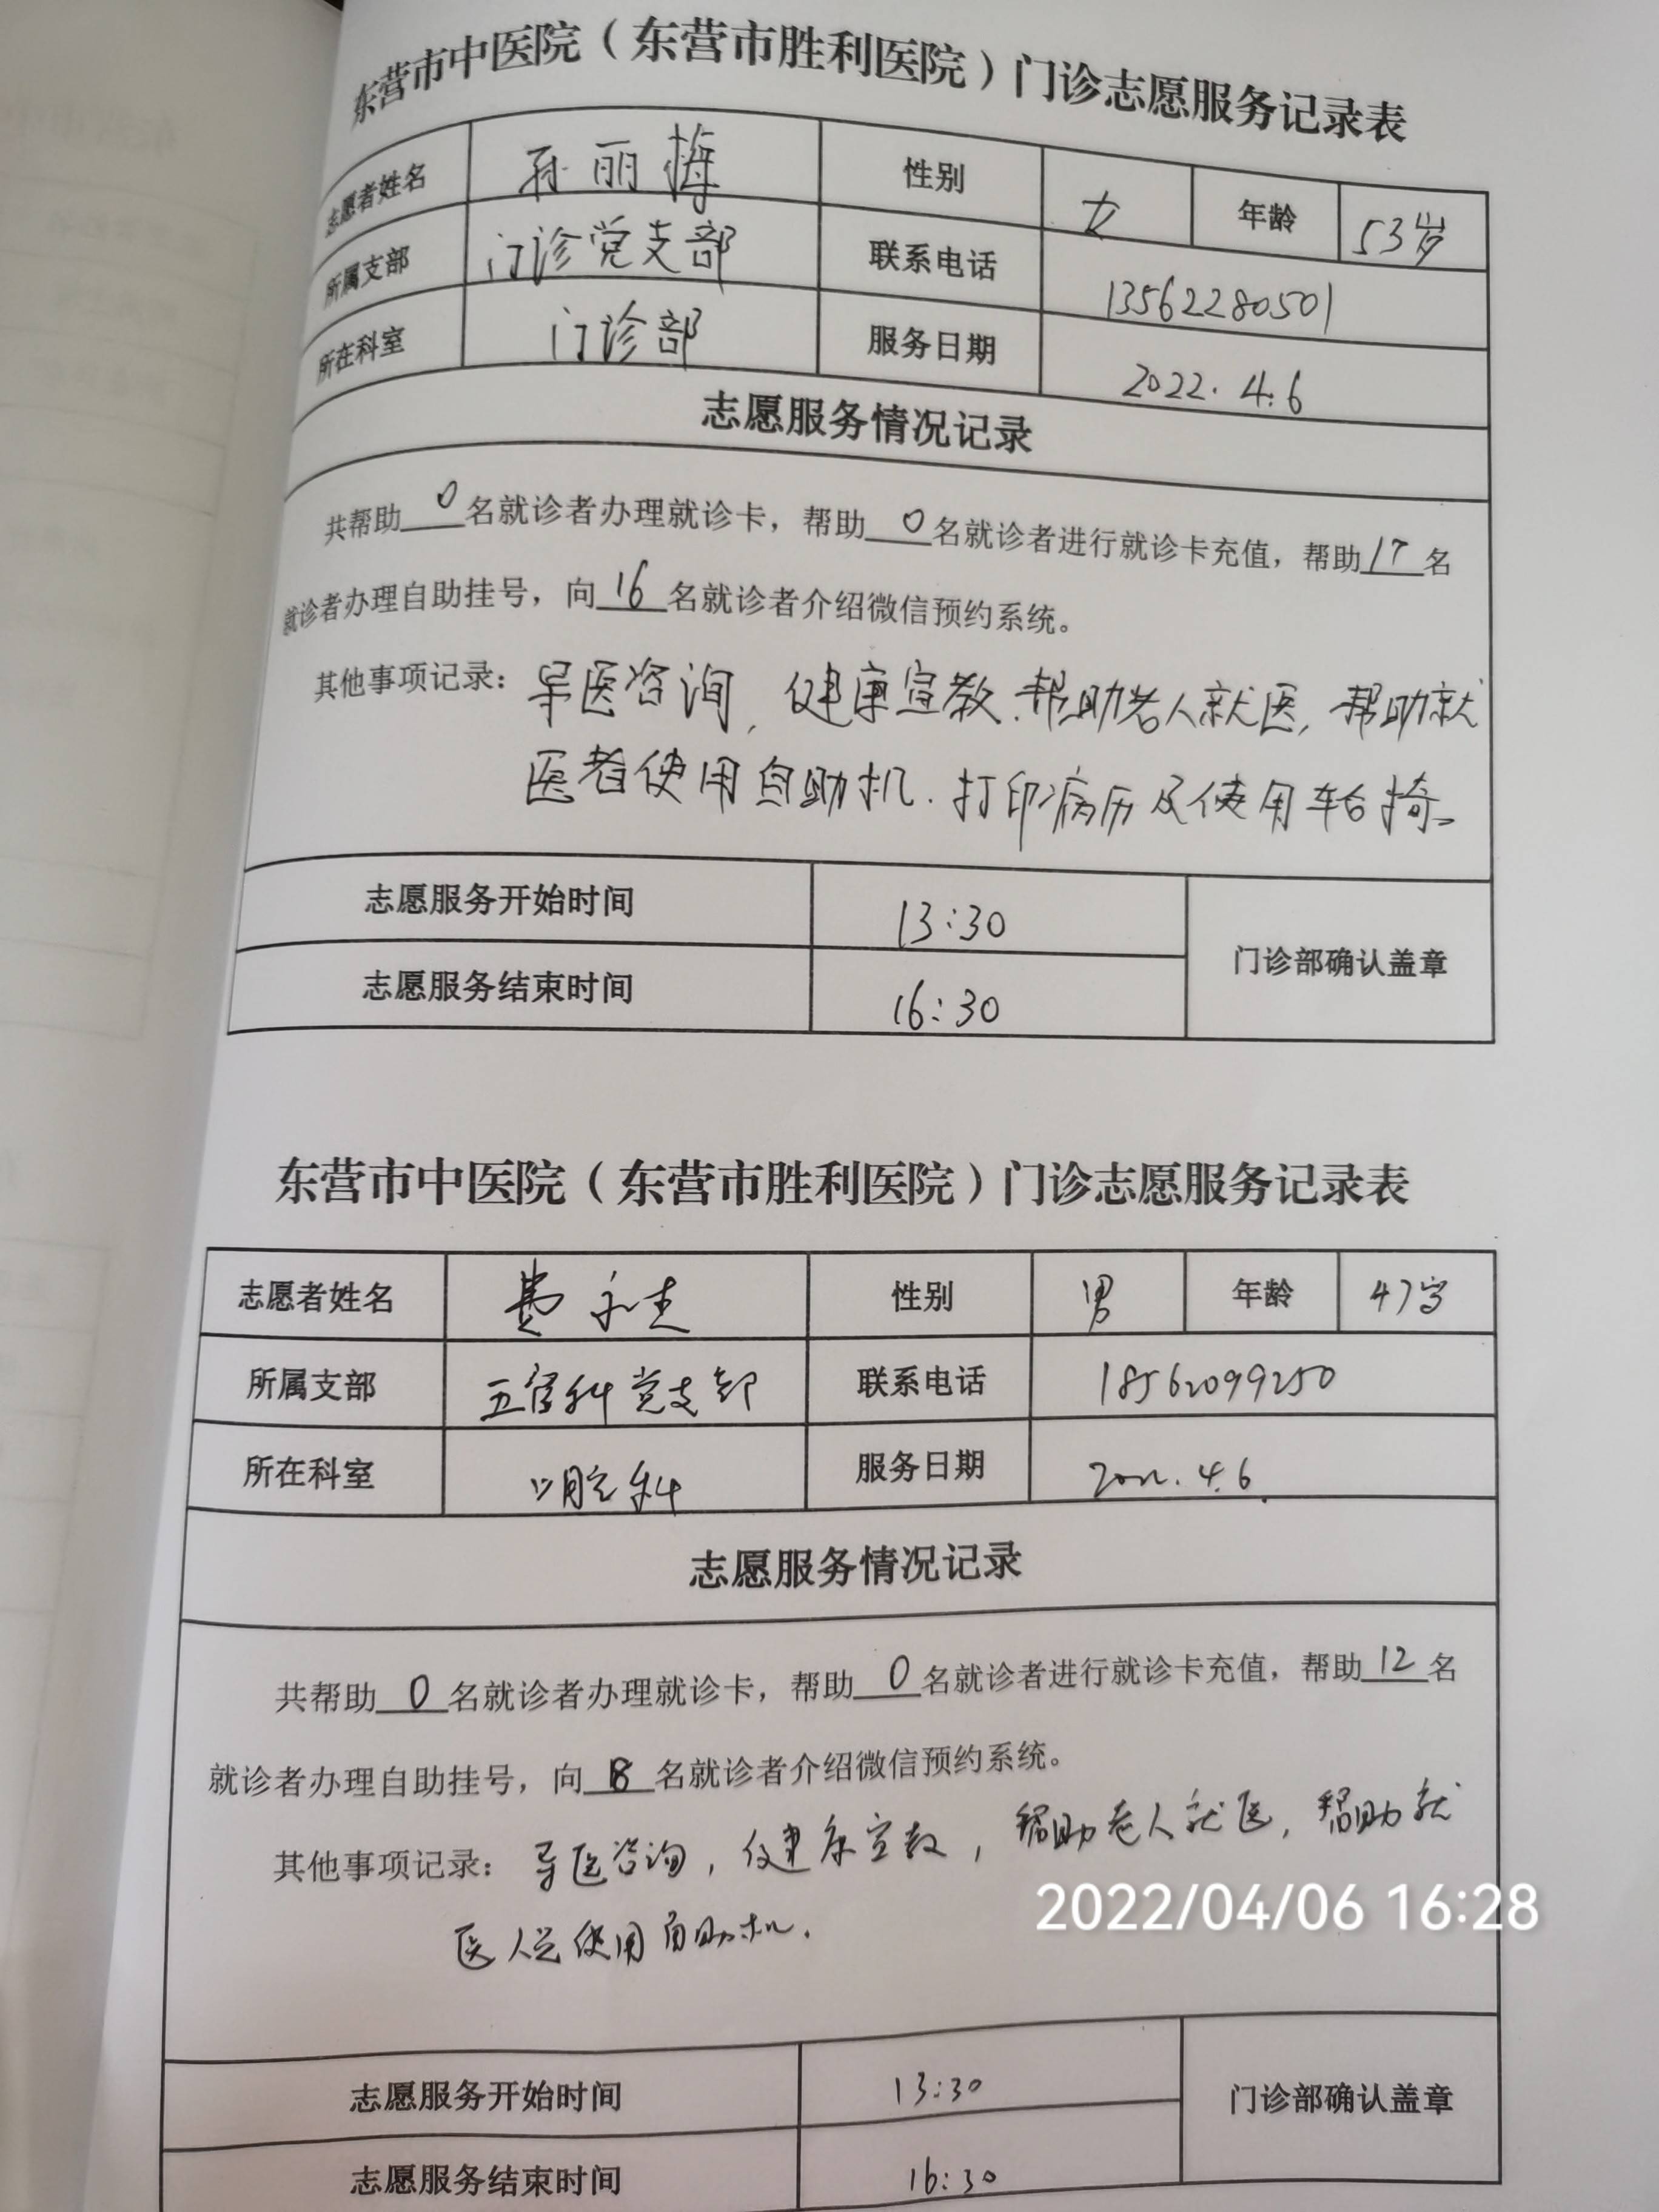 东营市中医院（东营市胜利医院）门诊志愿服务记录表
志愿者姓名 孙丽梅 性别 女 年龄 53岁
所属支部 门诊党支部 联系电话 13562280501
所在科室 门诊部 服务日期 2022.4.6
志愿服务情况记录
共帮助0名就诊者办理就诊卡，帮助0名就诊者进行就诊卡充值，帮助17名
就诊者办理自助挂号，向16名就诊者介绍微信预约系统。
其他事项记录：导医咨询，健康宣教.帮助老人就医，帮助就
医者使用自助机.打印病历及使用轮椅。
志愿服务开始时间 13:30
门诊部确认盖章
志愿服务结束时间 16:30
东营市中医院（东营市胜利医院）门诊志愿服务记录表
志愿者姓名 费 性别 男 年龄 47岁
所属支部 五官科党支部 联系电话 18562099250
所在科室 口腔科 服务日期 2022.4.6
志愿服务情况记录
共帮助0名就诊者办理就诊卡，帮助0名就诊者进行就诊卡充值，帮助12名
就诊者办理自助挂号，向8名就诊者介绍微信预约系统。
其他事项记录：导医咨询，健康宣教，帮助老人就医，帮助就
医人员使用自助机.
2022/04/06 16:28
志愿服务开始时间 13:30
门诊部确认盖章
志愿服务结束时间 16:30